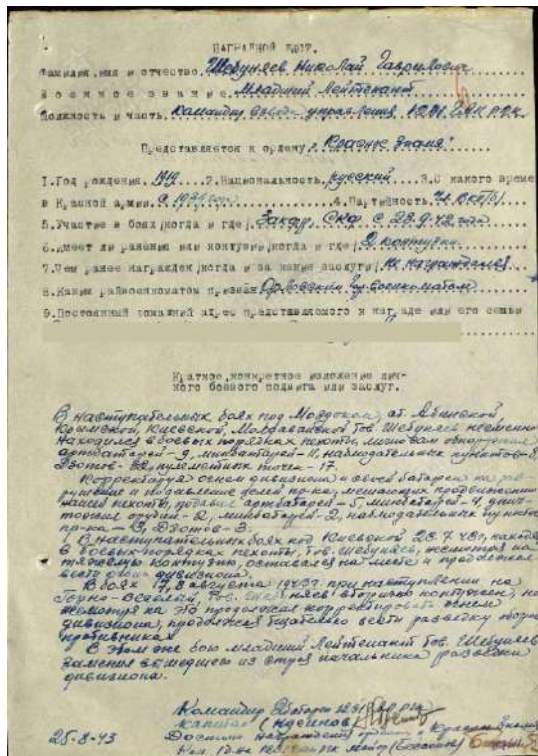 НАГРАДНОЙ ЛИСТ.
Фамилия, имя и отчество. Шебуняев Николай Гаврилович
Военное звание. Младший Лейтенант
Должность и часть. Командир взвода управления 1231 ГАП РГК.
Представляется к ордену "Красное Знамя"
1. Год рождения. 1919 2. Национальность. русский 3. С какого време
в Красной армии. с 4. Партийность. ВКП(б)
5. Участие в боях (когда и где) Закфр. СКФ с 23.9.42 года
6. Имеет ли ранения или контузии (когда и где) 2 контузии
7. Чем ранее награжден (когда и за какие заслуги) не награждался
8. Каким райвоенкоматом призван Орловским военкоматом
9. Постоянный домашний адрес представляемого к награде или его семьи
Краткое, конкретное изложение лич-
ного боевого подвига или заслуг.
В наступательных боях под Моздоком, ст. Абинской,
Крымской, Киевской, Молдаванской тов. Шебуняев неизменно
находился в боевых порядках пехоты, лично сам обнаружил
артбатарей - 9, минбатарей - 11, наблюдательных пунктов -
Дзотов - 22, пулеметных точек - 17.
Корректируя огнем дивизиона и своей батареи на раз-
рушение и подавление целей пр-ка, мешающих продвижению
нашей пехоты, подавил артбатарей - 5, минбатарей - 4, унич-
тожил орудий - 2, минбатарей - 2, наблюдательных пунктов
пр-ка - 3, Дзотов - 3.
В наступательных боях под Киевской 28.7.43г, находясь
в боевых порядках пехоты, тов. Шебуняев, несмотря на
тяжелую контузию, оставался на месте и продолжал
вести огонь дивизиона.
В боях 7, 8 августа 1943г. при наступлении на
Горно-Веселый, тов. Шебуняев вторично контужен, но
несмотря на это продолжал корректировать огнем
дивизиона, продолжая тщательно вести разведку обороны
противника.
В этом же бою младший Лейтенант тов. Шебуняев
заменил вышедшего из строя начальника разведки
дивизиона.
Командир батареи РГК
капитан
25-8-43 Достоин награждения орденом "Красное Знамя"